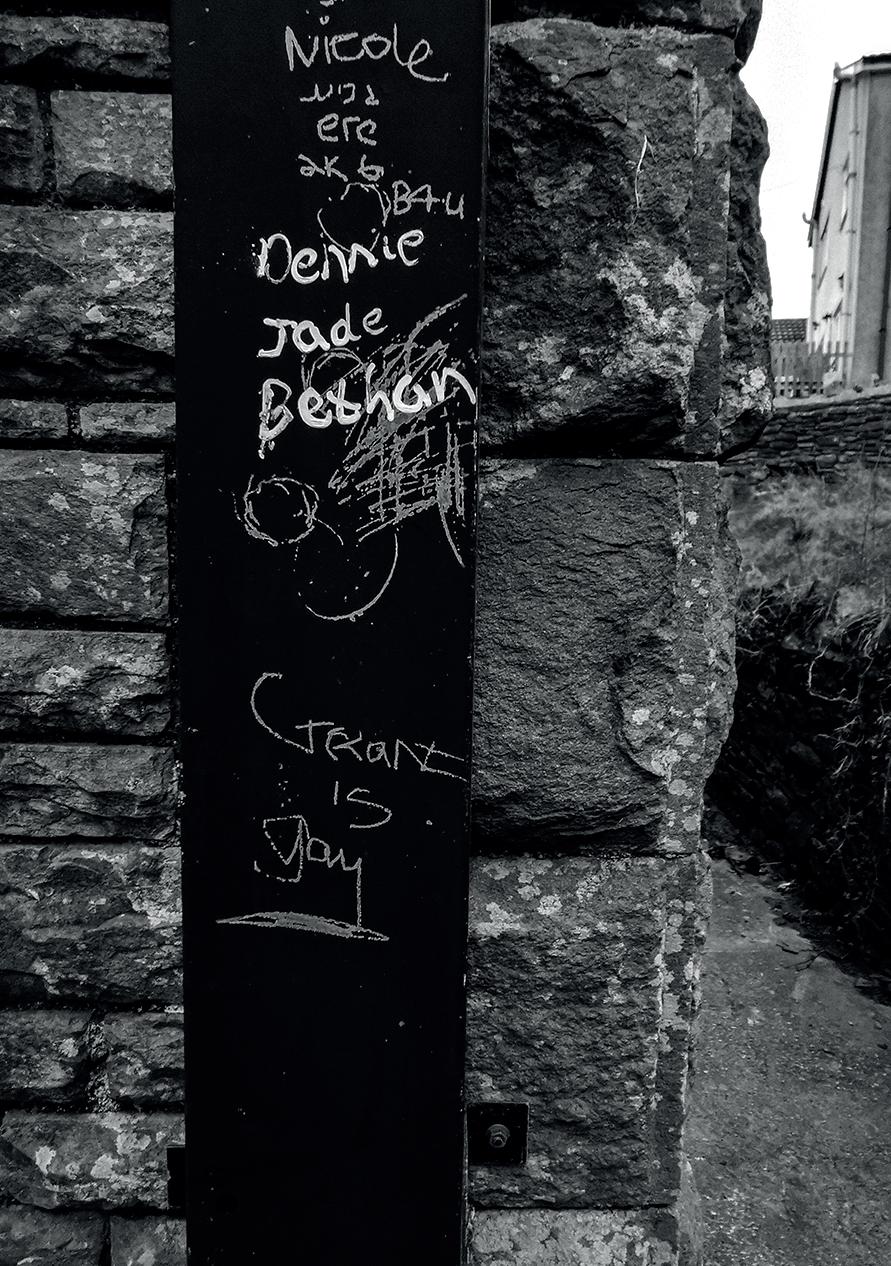 Nicole
woz
ere
B4 U
Dennie
Jade
Bethan
Grant
is
Gay